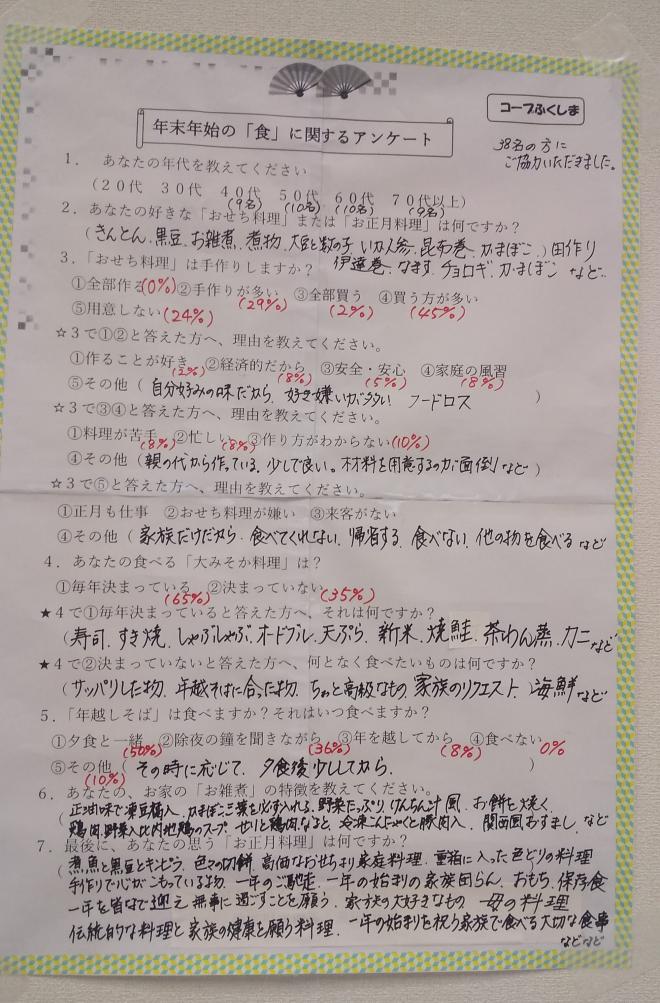 コープふくしま
年末年始の「食」に関するアンケート
38名の方に
ご協力いただきました。
1． あなたの年代を教えてください
（20代 30代 40代 50代 60代 70代以上）
(9名) (10名) (10名) (9名)
2．あなたの好きな「おせち料理」または「お正月料理」は何ですか？
（きんとん、黒豆、お雑煮、煮物、大豆と数の子 いか人参、昆布巻、かまぼこ、）田作り
伊達巻、なます、チョロギ、かまぼこ など
3．「おせち料理」は手作りしますか？
①全部作る(0%) ②手作りが多い ③全部買う ④買う方が多い
(29%) (2%) (45%)
⑤用意しない(24%)
☆3で①②と答えた方へ、理由を教えてください。
①作ることが好き ②経済的だから ③安全・安心 ④家庭の風習
(2%) (8%) (5%) (8%)
⑤その他（自分好みの味だから、好き嫌いが多い フードロス ）
☆3で③④と答えた方へ、理由を教えてください。
①料理が苦手 ②忙しい ③作り方がわからない(10%)
(8%) (8%)
④その他（親の代から作っている、少しで良い、材料を用意するのが面倒）など
☆3で⑤と答えた方へ、理由を教えてください。
①正月も仕事 ②おせち料理が嫌い ③来客がない
④その他（家族だけだから、食べてくれない、帰省する、食べない、他の物を食べる など
4．あなたの食べる「大みそか料理」は？
①毎年決まっている ②決まっていない(35%)
(65%)
★4で①毎年決まっていると答えた方へ、それは何ですか？
（寿司、すき焼、しゃぶしゃぶ、オードブル、天ぷら、新米、焼鮭、茶わん蒸、カニ など
★4で②決まっていないと答えた方へ、何となく食べたいものは何ですか？
（サッパリした物、年越そばに合った物、ちょっと高級なもの、家族のリクエスト、海鮮 など
5．「年越しそば」は食べますか？それはいつ食べますか？
①夕食と一緒 ②除夜の鐘を聞きながら ③年を越してから ④食べない 0%
(50%) (36%) (8%)
⑤その他（その時に応じて、夕食後少ししてから、 ）
(10%)
6．あなたの、お家の「お雑煮」の特徴を教えてください。
（正油味で凍豆腐入、かまぼこ、三葉を必ず入れる、野菜たっぷり けんちん汁風、お餅を焼く、
鶏肉、野菜入 比内地鶏のスープ、せりと鶏肉、なると、冷凍こんにゃくと豚肉入、関西風おすまし、など
7．最後に、あなたの思う「お正月料理」は何ですか？
（煮魚と黒豆とキンピラ、色々の切餅、高価なおせちより家庭料理、重箱に入った色どりの料理
手作りで心がこもっているよ物、一年のご馳走、一年の始まりの家族団らん、おもち、保存食
一年を皆なで迎え 無事に過ごすことを願う、家族の大好きなもの 母の料理
伝統的な料理と家族の健康を願う料理、一年の始まりを祝う家族で食べる大切な食事
などなど